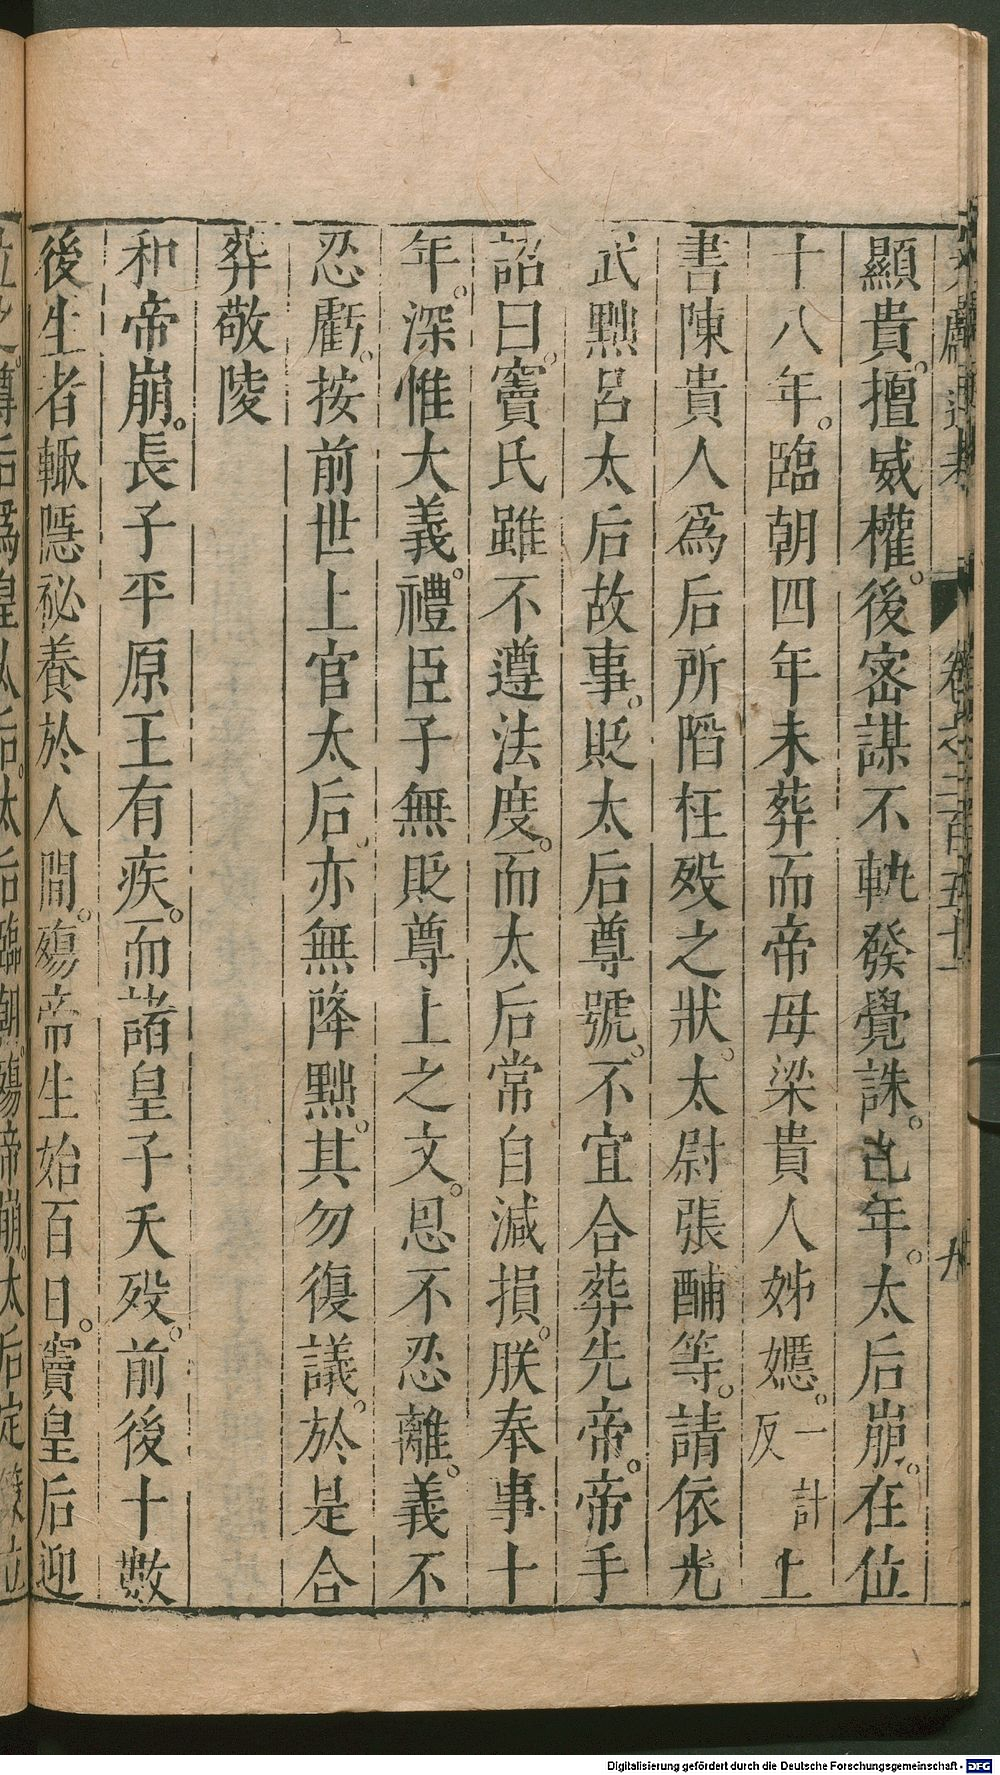 文獻通考 卷之二百五十一 九
顯貴。擅威權。後密謀不軌發覺誅。邑年。太后崩。在位
十八年。臨朝四年未葬而帝母梁貴人姊嫕。一計反上
書陳貴人為后所陷枉歿之狀。太尉張酺等。請依光
武黜呂太后故事。貶太后尊號。不宜合葬先帝。帝手
詔曰。竇氏雖不遵法度。而太后常自減損。朕奉事十
年。深惟大義。禮臣子無貶尊上之文。恩不忍離。義不
忍虧。按前世上官太后。亦無降黜。其勿復議。於是合
葬敬陵
和帝崩。長子平原王有疾。而諸皇子夭歿。前後十數
後生者輙隱祕養於人間。殤帝生始百日。竇皇后迎
后為皇太后。太后臨朝。殤帝崩。太后定策立
Digitalisierung gefördert durch die Deutsche Forschungsgemeinschaft - DFG